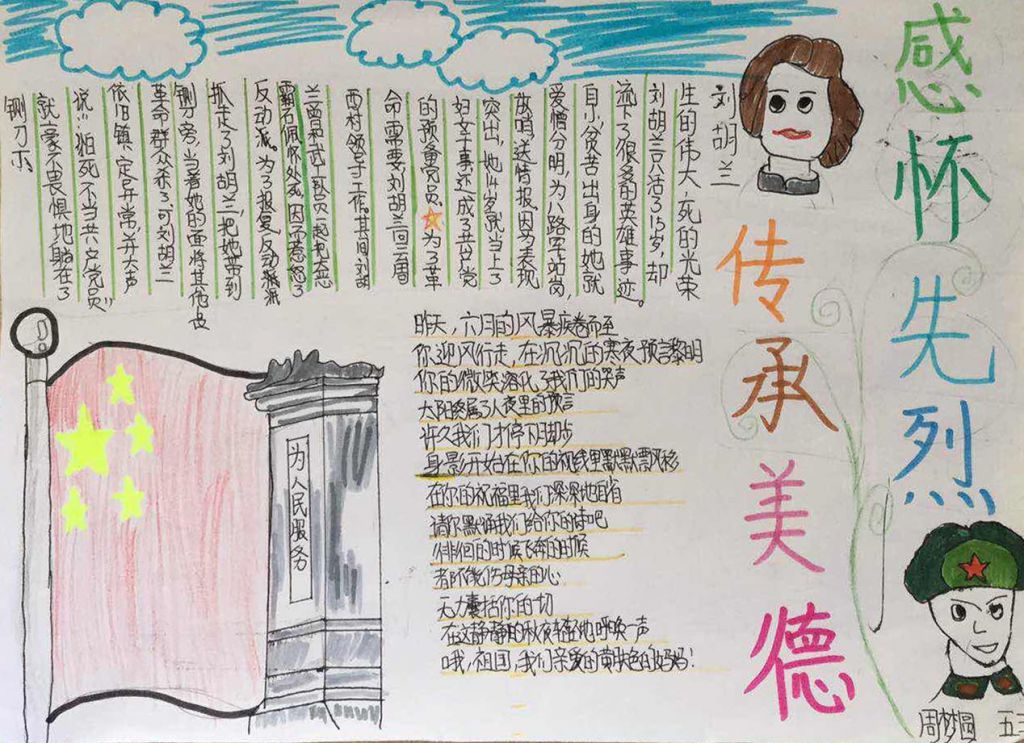 感怀先烈
传承美德
刘胡兰
生的伟大,死的光荣
刘胡兰只活了15岁,却
流下了很多的英雄事迹。
自小贫苦出身的她就
爱憎分明,为八路军站岗,
放哨,送情报,因为表现
突出,她14岁就当上了
妇女干事还成了共产党
的预备党员。为了革
命需要刘胡兰回三周
西村领导工作。其间刘胡
兰曾和武工队员一起把大恶
霸石佩怀处死,因而惹怒了
反动派。为了报复,反动派派
抓走了刘胡兰,把她带到
铡刀旁,当着她的面将其他
革命群众杀了,可刘胡兰
依旧镇定异常,并大声
说:“怕死不当共产党员”
就毫不畏惧地躺在了
铡刀下。
昨天,六月的风暴疾卷而至
你迎风行走,在沉沉的寒夜预言黎明
你的微笑溶化了我们的哭声
太阳终属了人夜里的预言
许久我们才停下脚步
身影开始在你的视线里默默飘移
在你的祝福里我们深深地自省
请你默诵我们给你的诗吧
徘徊的时候飞奔的时候
都不能伤母亲的心
无力囊括你的一切
在这静静的秋夜轻轻地呼唤一声
哦,祖国,我们亲爱的黄肤色的妈妈!
为人民服务
周梦圆 五三